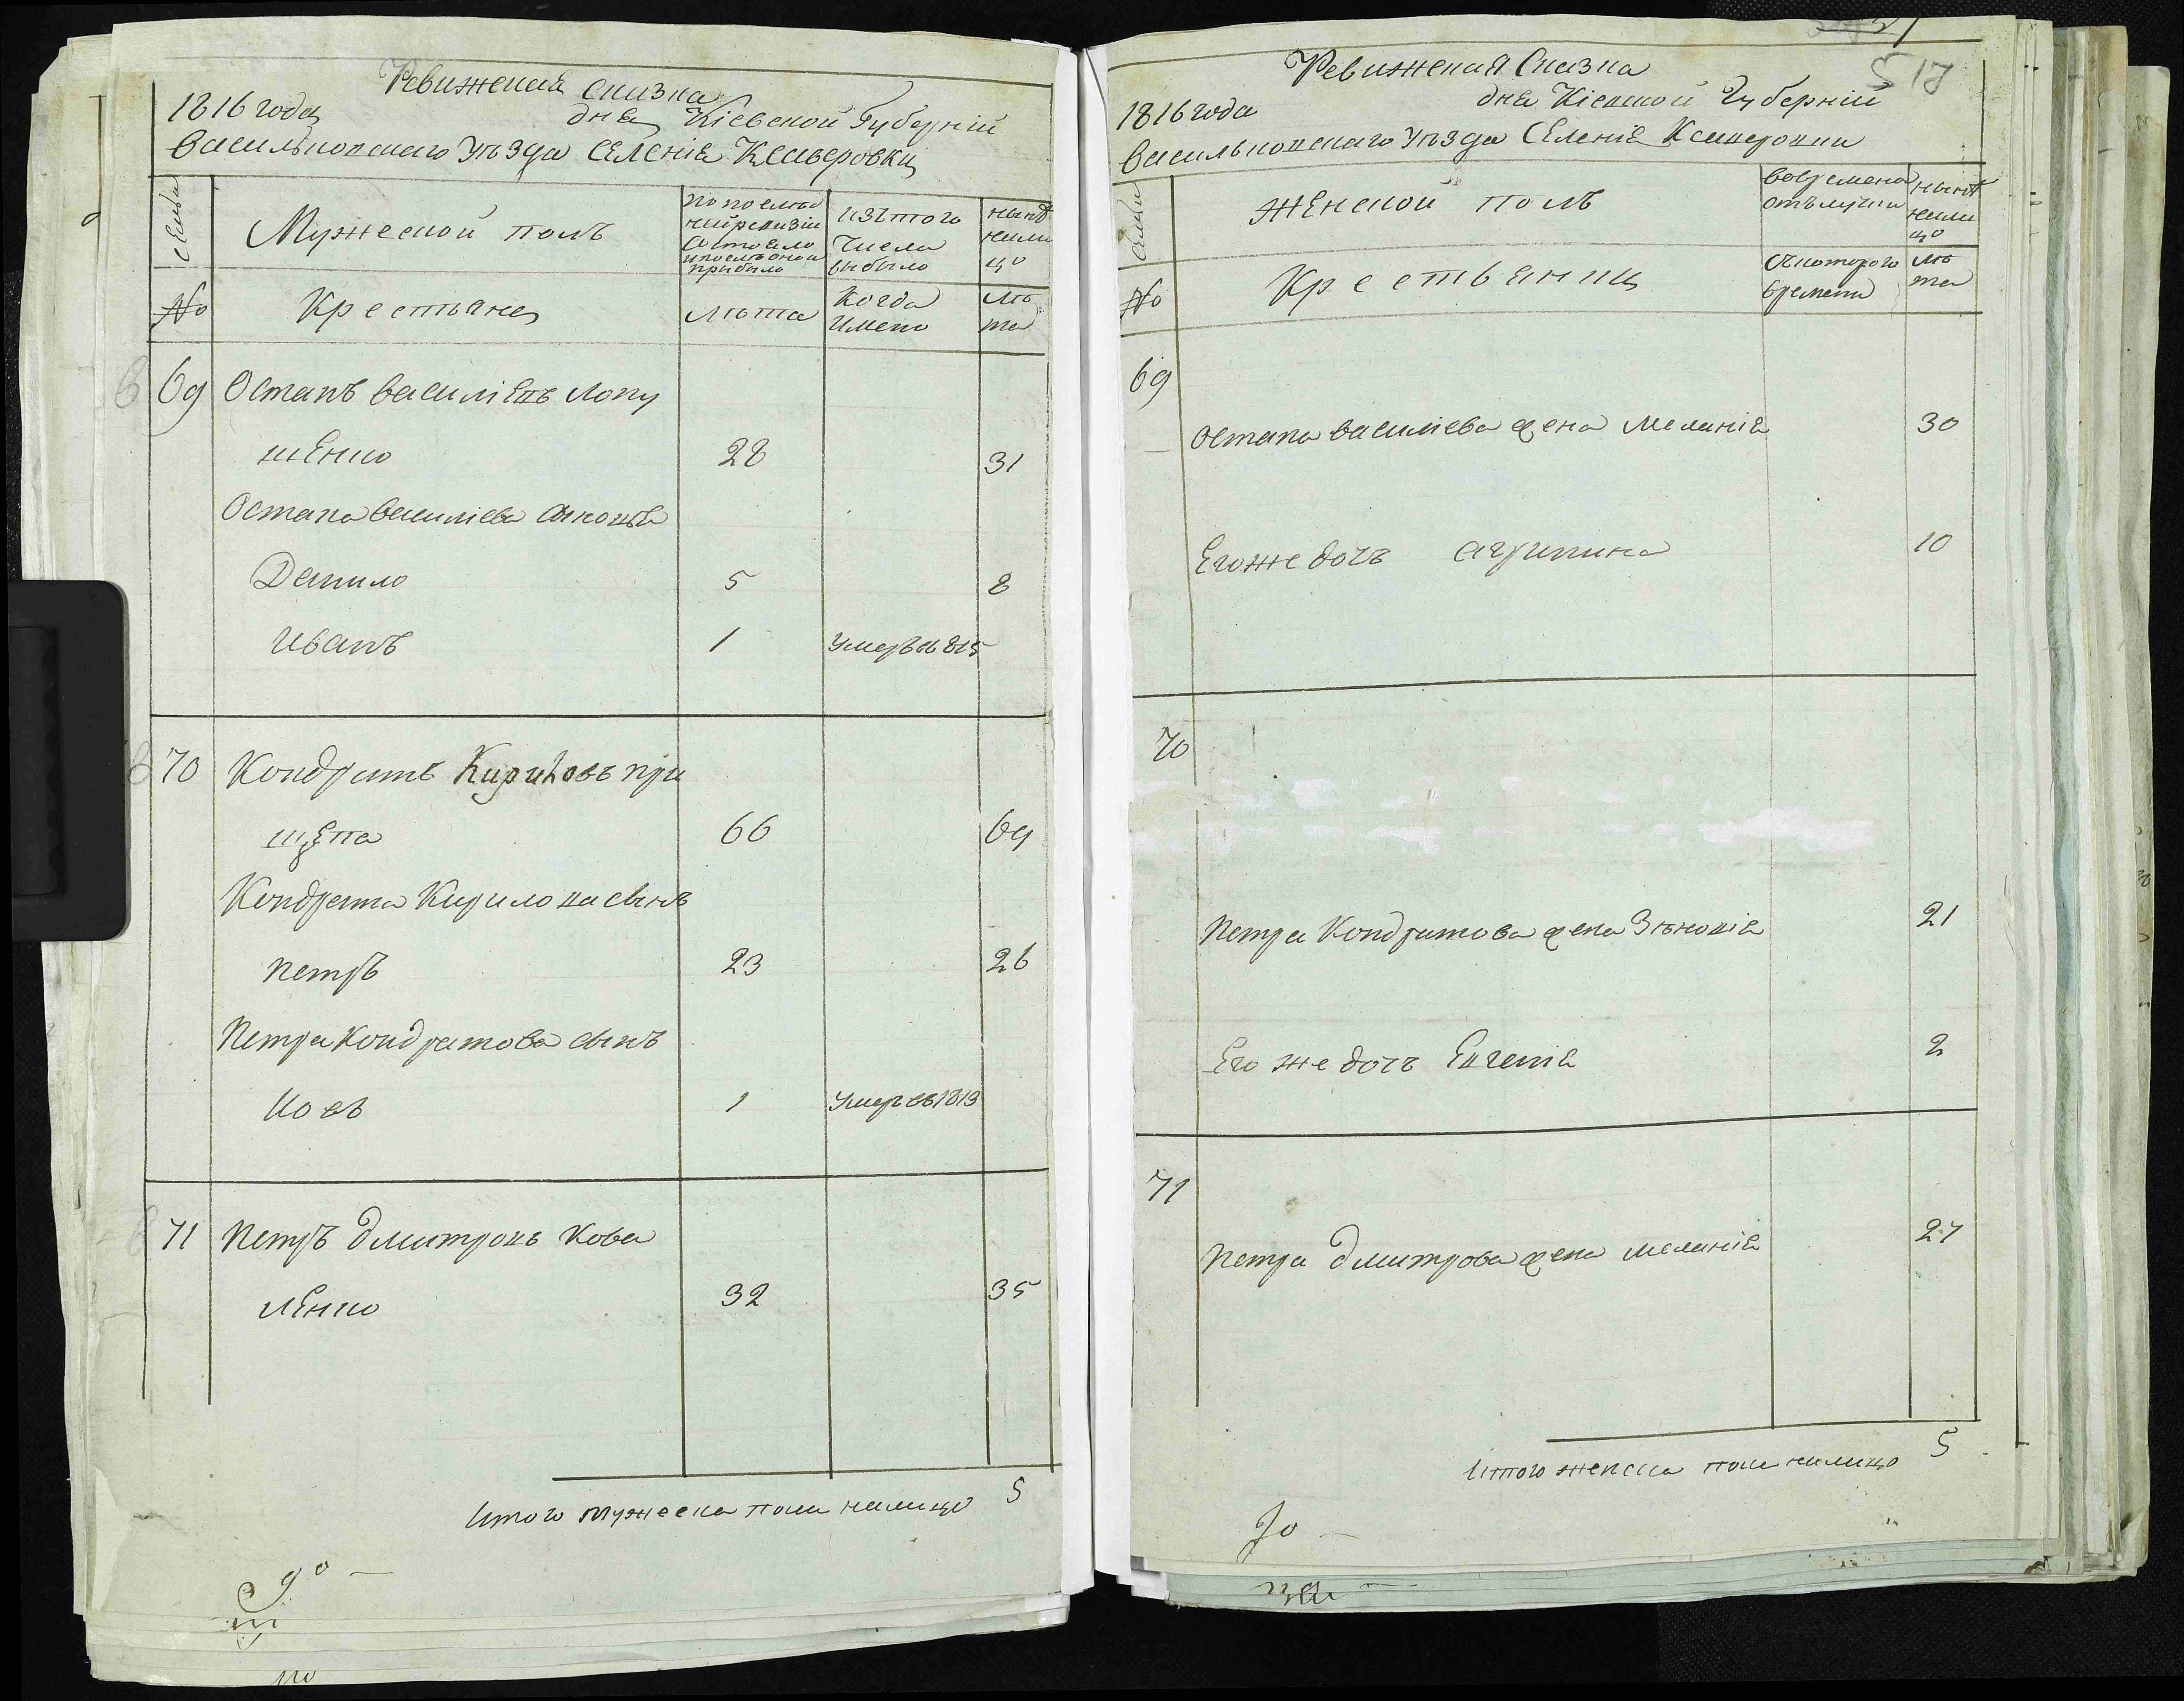 Ревижская сказка
1816 года дня Кіевской Губерній
Васильковскаго уѣзда Селенія Ксаверовки
Семьи
Мужеской полъ
По последней ревизіи состояло и после оной прибыло
Изътого числа выбыло
Ныне налицо
№
Крестьяне
Лѣта
Когда имено
Лѣта
69 Остапъ Василіевъ Лопу
шенко 28 31
Остапа Василіева сыновья
Данило 5 8
Иванъ 1 Умеръ въ 815
70 Кондратъ Кириловъ при
щепа 66 69
Кондрата Кирилова сынъ
Петръ 23 26
Петра Кондратова сынъ
1 Умеръ въ 1813
71 Петръ Дмитровъ Кова
ленко 32 35
Итого мужеска пола налицо 5
Ревижская Сказка
517
1816 года дня Кіевской Губерніи
Васильковскаго уѣзда Селенія Ксаверовки
Семьи
Женской полъ
Вовремена отълучки
Ныне налицо
№
Крестьянки
Скоторого времени
Лѣта
69
Остапа Василіева жена Меланія 30
Егоже дочь Агрипина 10
70
Петра Кондратова жена Зѣновія 21
Его же дочь Евгенія 2
71
Петра Дмитрова жена Меланія 27
Итого женска пола налицо 5